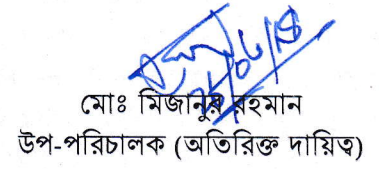 মোঃ মিজানুর রহমান
উপ-পরিচালক (অতিরিক্ত দায়িত্ব)